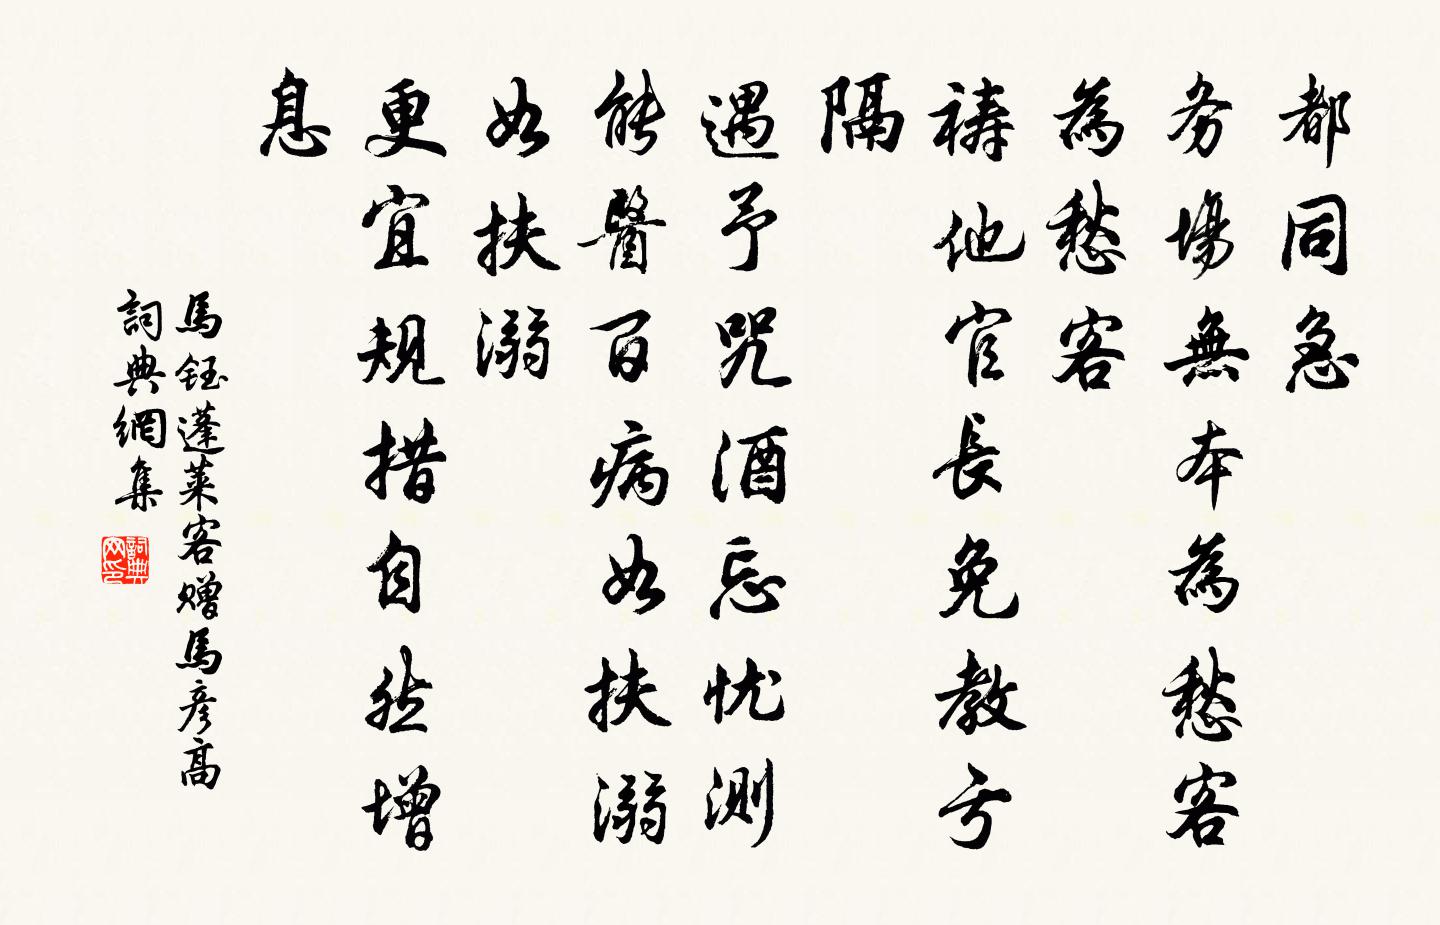 都同急
务場無本為愁客
為愁客
祷他官長免教亏
隔
遇予咒酒忘忧測
能醫百病如扶溺
如扶溺
更宜規措自然增
息
馬鈺蓬萊客赠馬彦高
詞典網集
詞典网